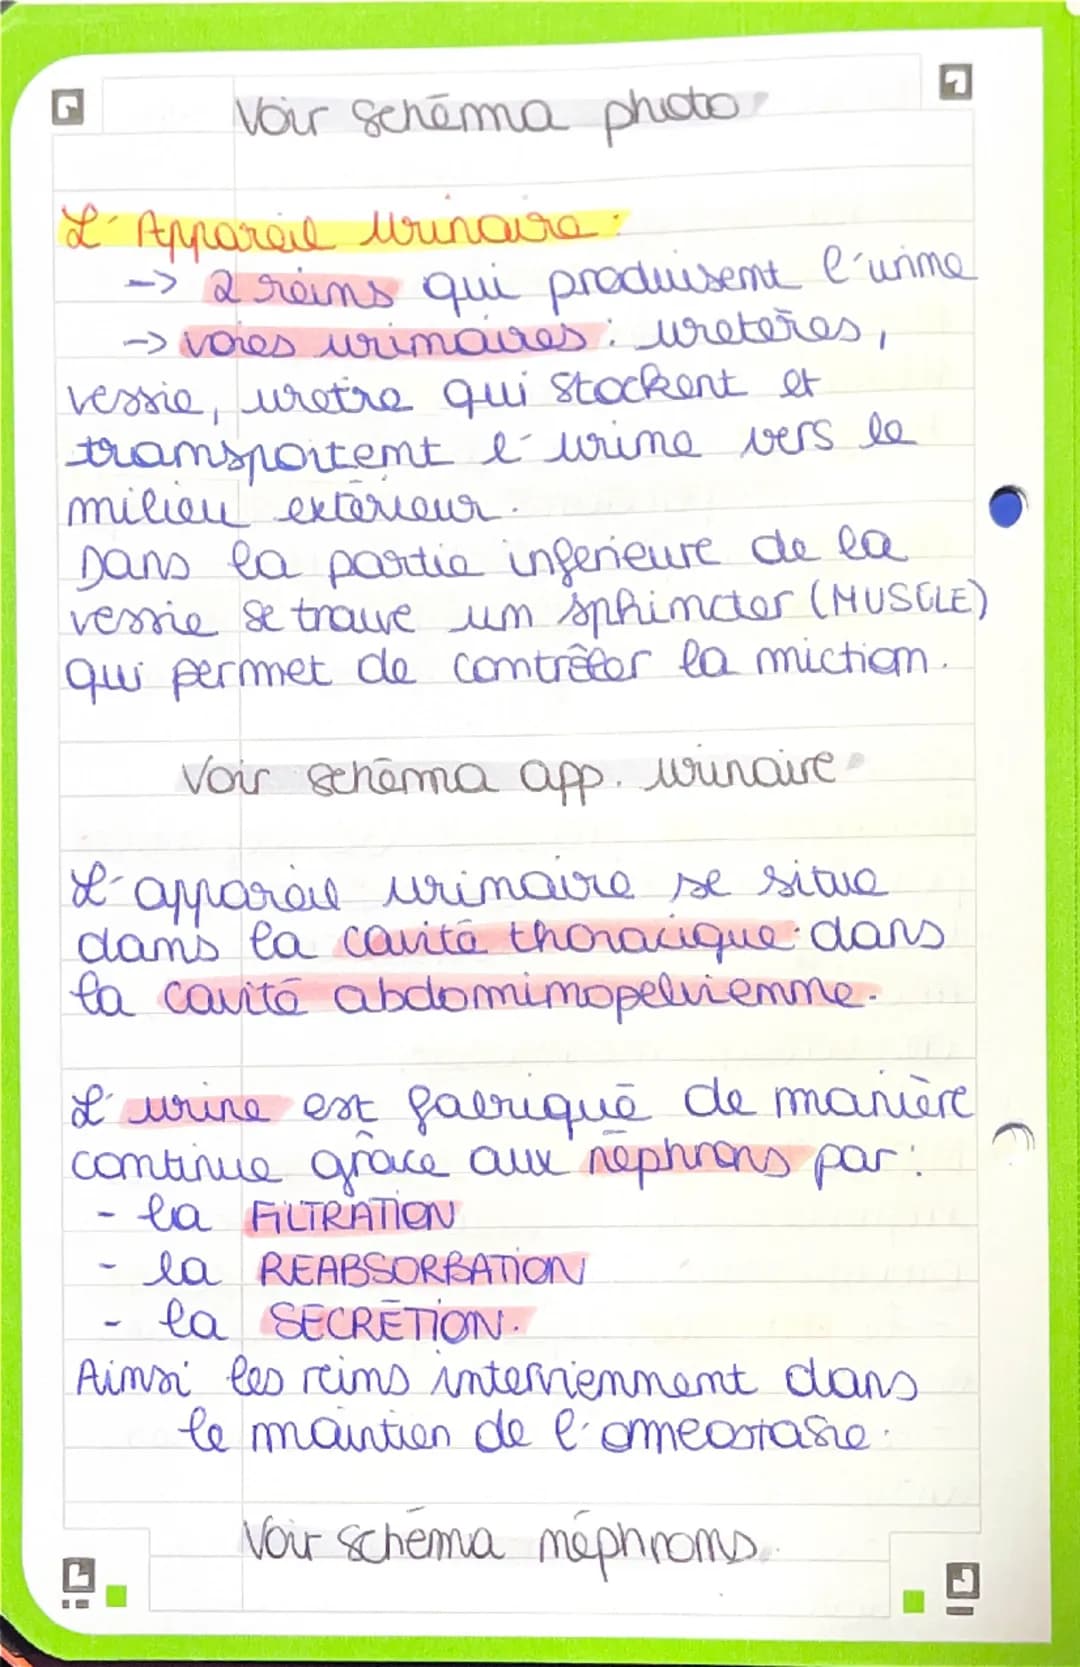 Voir schéma photo
L'Appareil Urinaire :
-> 2 reins qui produisent l'urine
-> voies urinaires : uretères,
vessie, uretre qui stockent et
transportent l'urine vers le
milieu extérieur.
Dans la partie inferieure de la
vessie se trouve un sphincter (MUSCLE)
qui permet de contrôler la miction.
Voir schéma app. urinaire
L'appareil urinaire se situe
dans la cavité thoracique dans
la cavité abdominopelvienne.
L'urine est fabriqué de manière
continue grâce aux néphrons par :
- la FILTRATION
- la REABSORBATION
- la SECRÉTION.
Ainsi les reins interviennent dans
le maintien de l'omeostasie.
Voir schéma néphrons.